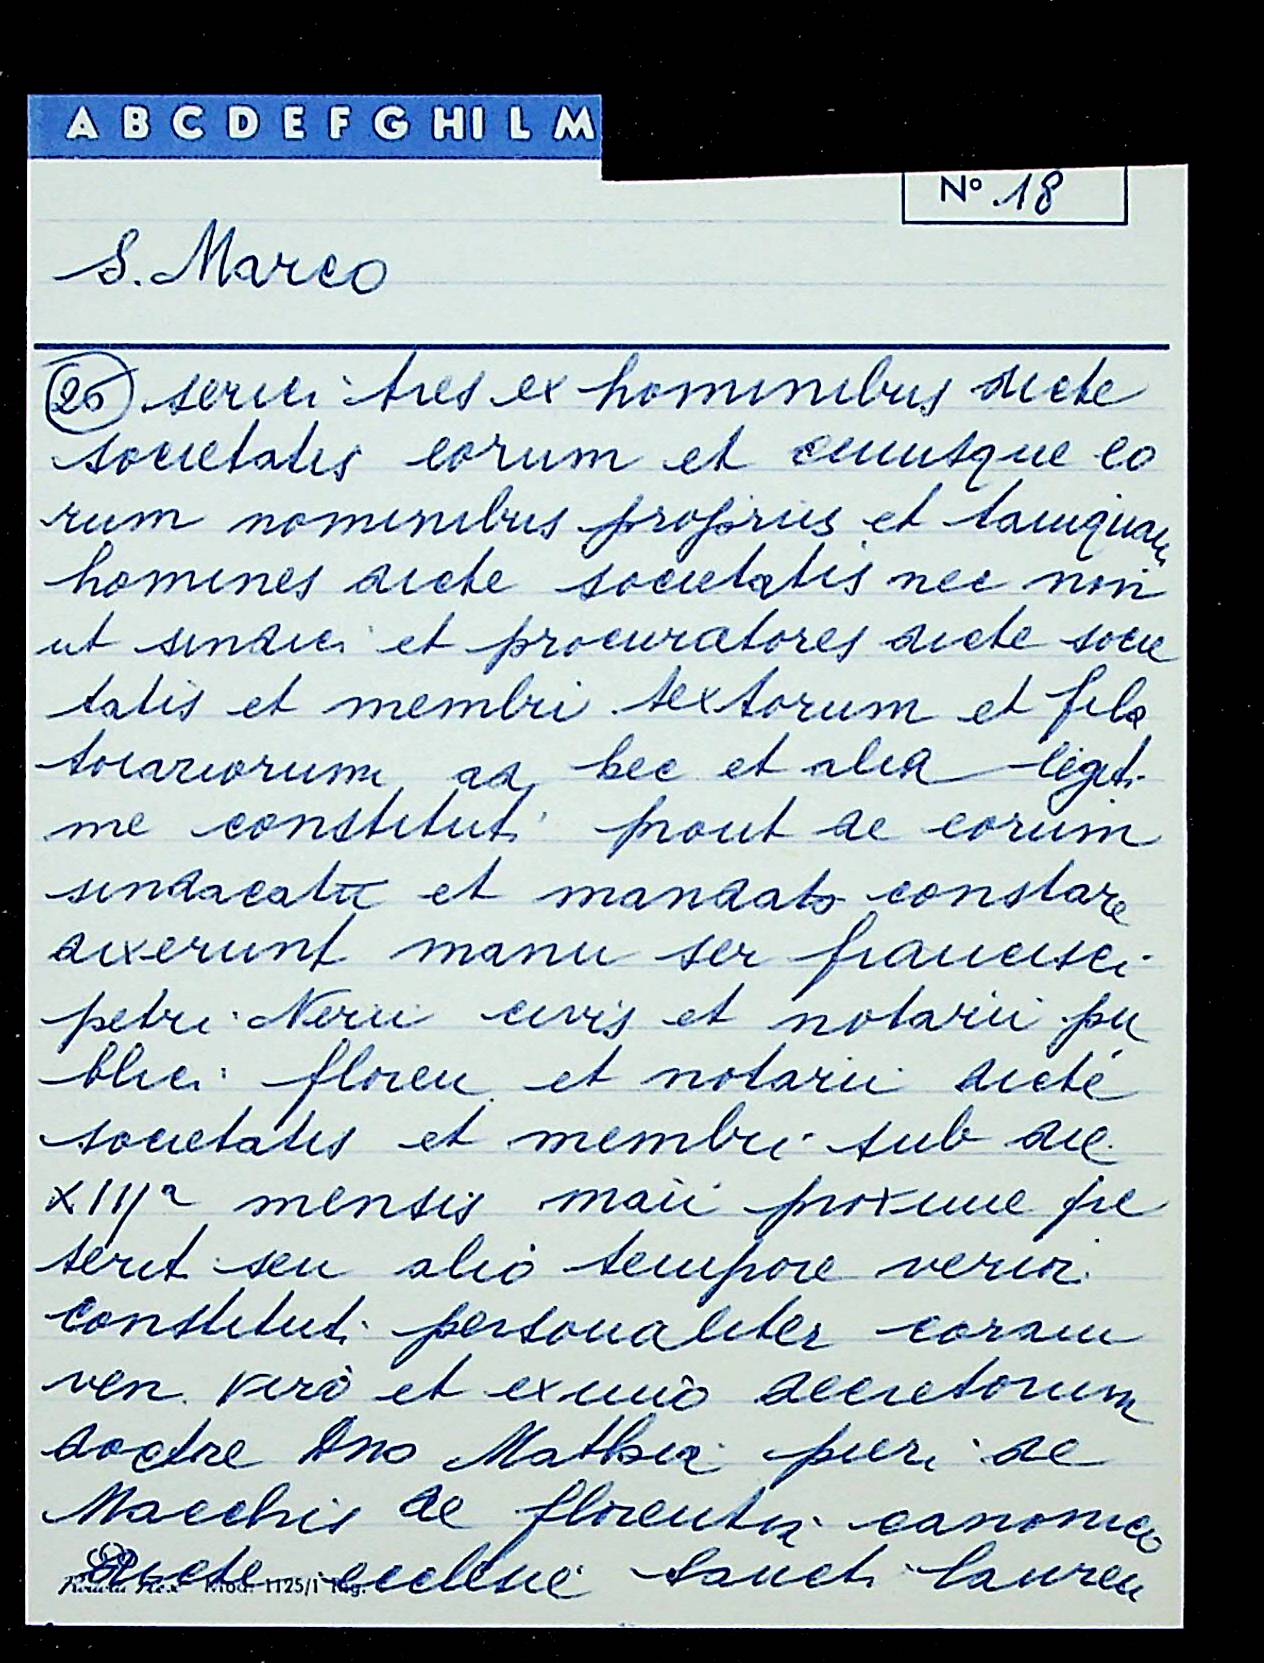 A B C D E F G H I L M
Nº 18
S. Marco
26 serici tres ex hominibus dicte
societatis eorum et cuiusque eo
rum nominibus propriis et tamquam
homines dicte societatis nec non
ut sindici et procuratores dicte socie
tatis et membri textorum et fila
toiariorum ad hec et alia legiti
me constituti prout de eorum
sindacatu et mandato constare
dixerunt manu ser francisci
petri Nerii civis et notarii pu
blici floren et notarii dicte
societatis et membri sub die
XIIIJa mensis maii proxime pre
terit seu alio tempore veriori
constituti personaliter coram
ven. viro et eximio decretorum
doctore Dno Mathia pieri de
Macchis de florentia canonico
dicte ecclesie Sancti Lauren
Mod. 1125/1 Rig.